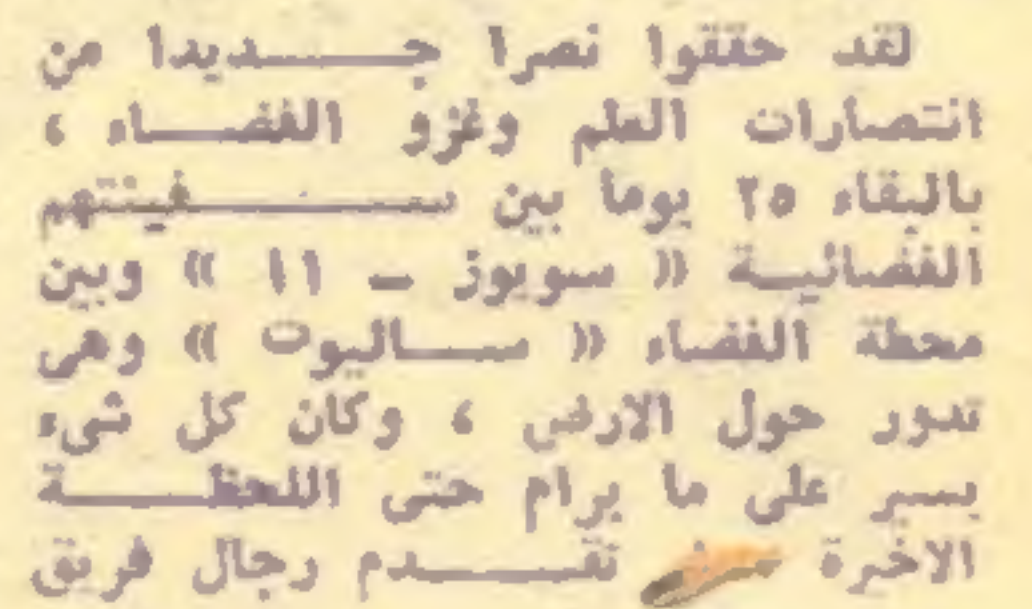 لقد حققوا نصرا جـــــديدا من
انتصارات العلم وغزو الفضـــاء ،
بالبقاء ٢٥ يوما بين ســـــفينتهم
الفضائيـة « سويوز ـ ١١ » وبين
محطة الفضاء « ســـاليوت » وهى
تدور حول الارض ، وكان كل شىء
يسير على ما يرام حتى اللحظـــــة
الاخيرة تقـــــدم رجال فريق